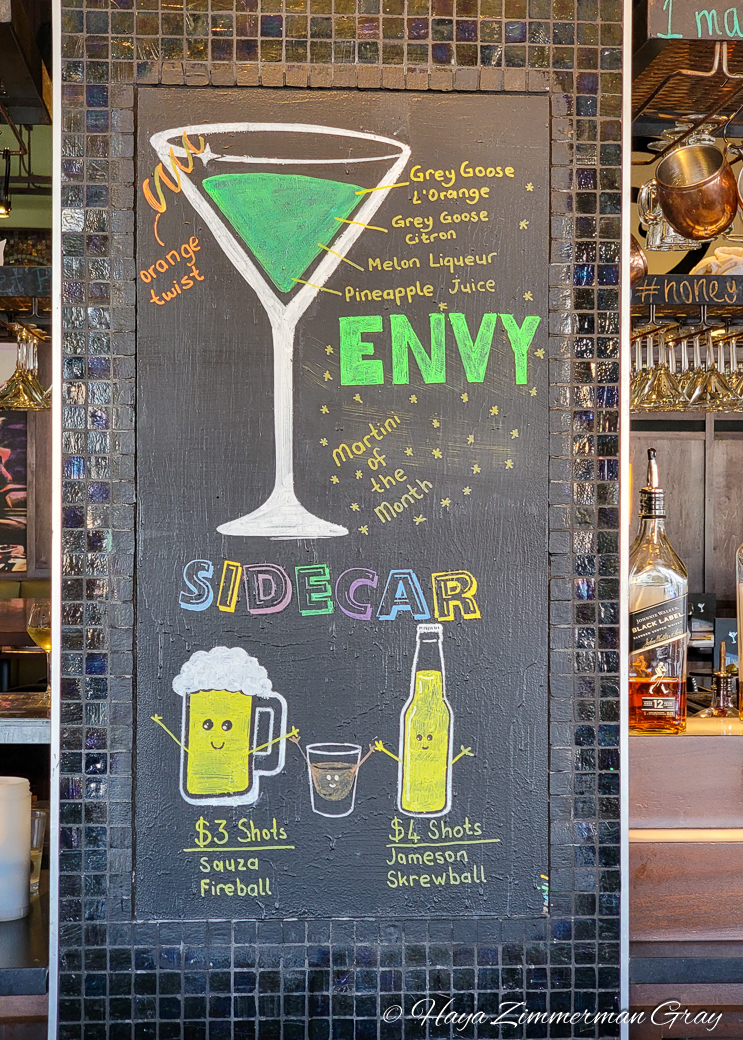 1 ma
Grey Goose
L'Orange
Grey Goose
Citron
Melon Liqueur
Pineapple Juice
orange
twist
#honey
ENVY
Martini
of
the
Month
SIDECAR
JOHNNIE WALKER
BLACK LABEL
12
$3 Shots
Sauza
Fireball
$4 Shots
Jameson
Skrewball
© Haya Zimmerman Gray